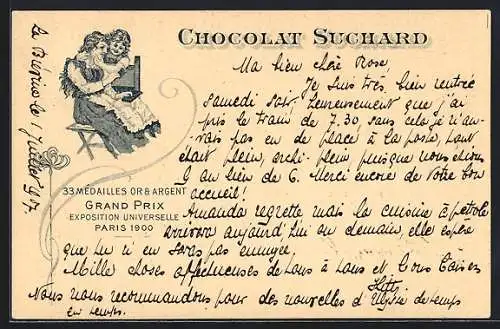 CHOCOLAT SUCHARD
La Brévine le 1 Juillet 07.
Ma bien chère Rose
Je suis très bien rentrée
samedi soir heureusement que j'ai
pris le train de 7.30, sans cela je n'au-
rais pas eu de place à la poste, tout
était plein, archi-plein puisque nous étions
au lieu de 6. Merci encore de votre bon
accueil!
Amanda regrette mais la cuisine à pétrole
arrivera aujourd'hui ou demain, elle espère
que tu n'en seras pas ennuyée.
Mille choses affectueuses de tous à tous et bons baisers
Nous nous recommandons pour des nouvelles d' de temps
en temps.
33 MÉDAILLES OR & ARGENT
GRAND PRIX
EXPOSITION UNIVERSELLE
PARIS 1900